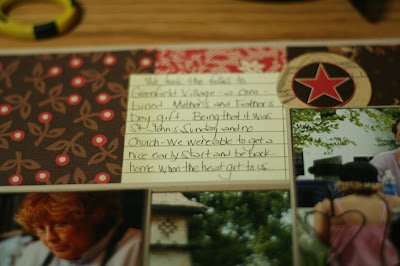 We took the folks to
Greenfield Village - a com
bined Mother's and Father's
Day gift. Being that it was
St. John's Sunday and no
Church - We were able to get a
nice early start and be back
home when the heat got to us.